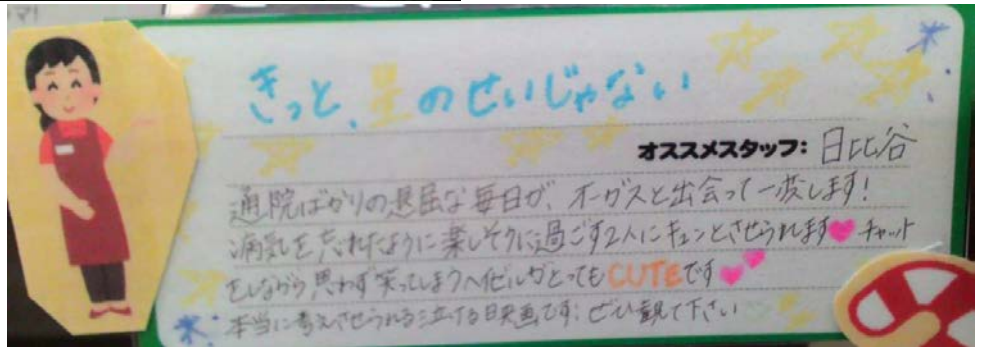 きっと、星のせいじゃない
オススメスタッフ: 日比谷
通院ばかりの退屈な毎日が、オーガスと出会って一変します!
病気を忘れたように楽しそうに過ごす2人にキュンとさせられます チャット
をしながら思わず笑ってしまうヘイゼルがとってもCUTEです
本当に考えさせられる泣ける映画です; ぜひ観て下さい